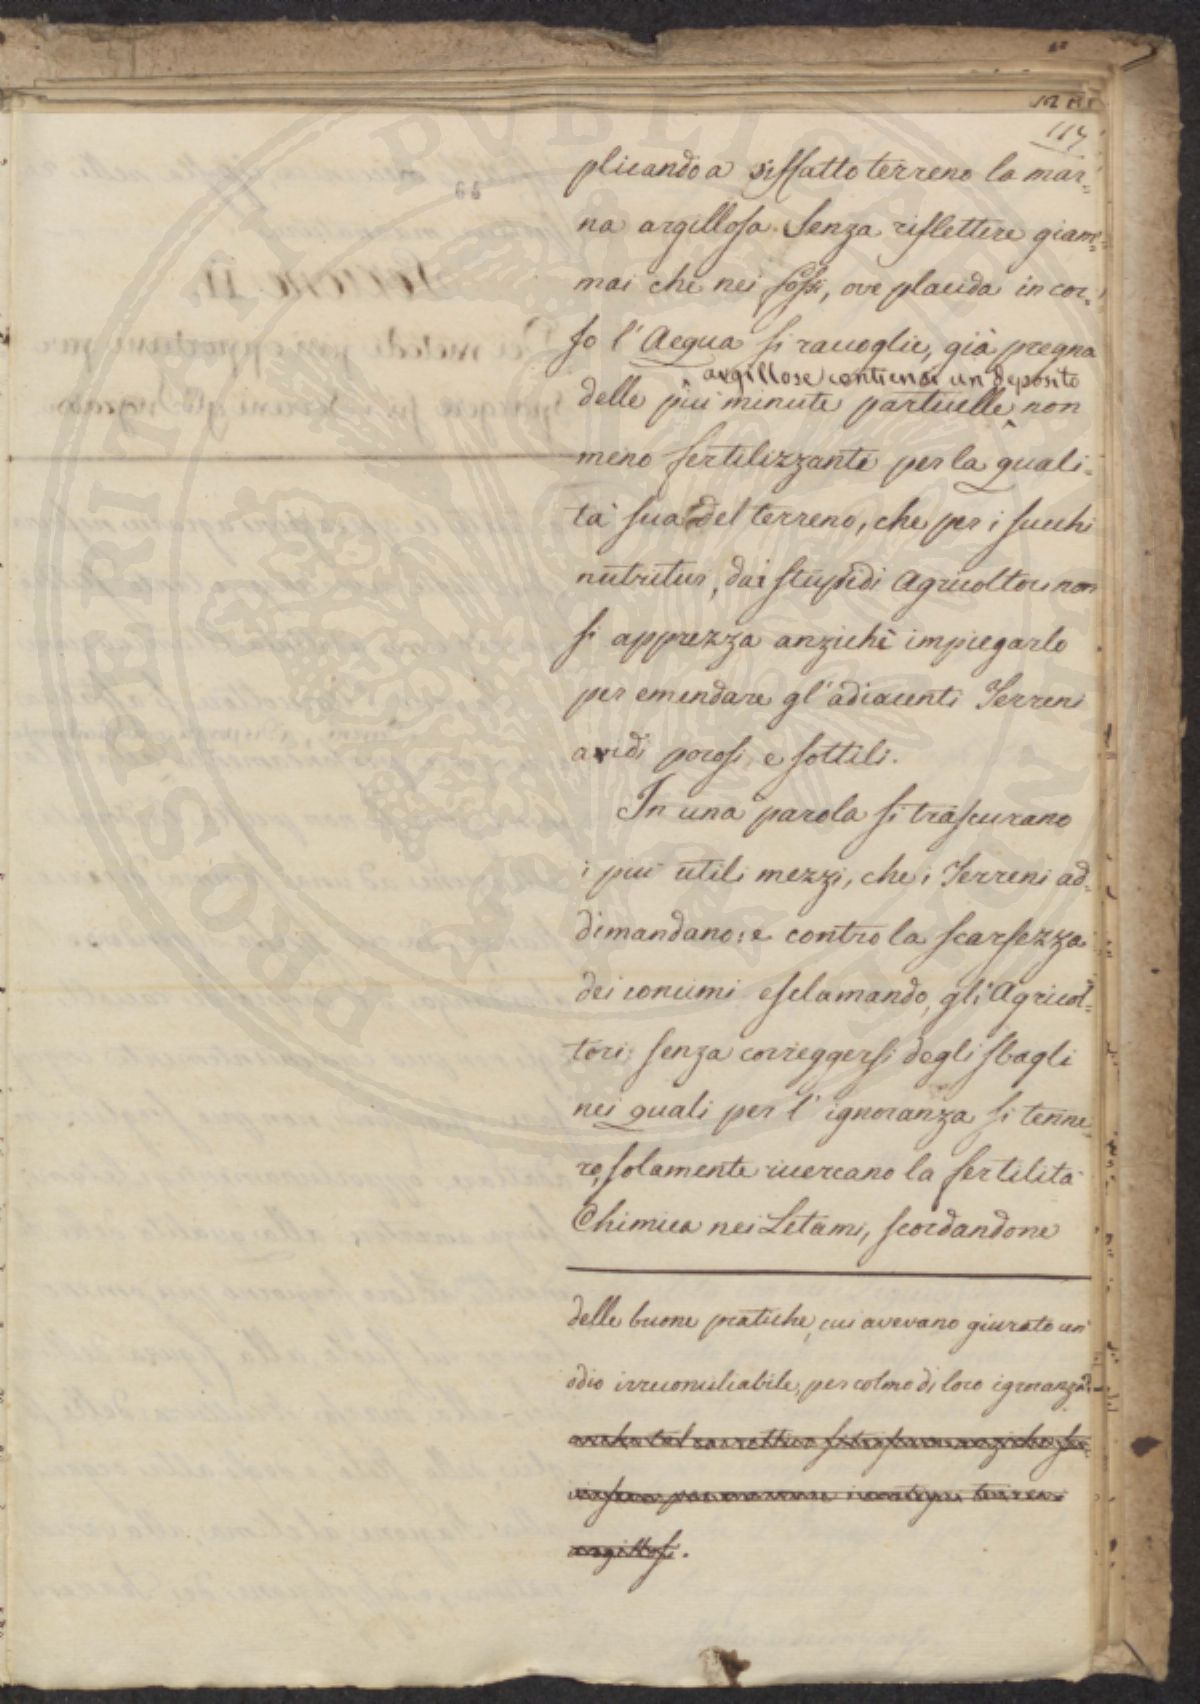 117
plicando a siffatto terreno la mar=
na argillosa. Senza riflettere giam=
mai che nei fossi, ove placida in cor=
so l'Acqua si raccoglie, già pregna
argillose contiensi un deposito
delle più minute particelle non
meno fertilizzante per la quali=
tà sua del terreno, che per i succhi
nutritivi, dai stupidi Agricoltori non
si apprezza anzichè impiegarlo
per emendare gl'adiacenti Terreni
aridi porosi, e sottili.
In una parola si trascurano
i più utili mezzi, che i Terreni ad=
dimandano: e contro la scarsezza
dei concimi esclamando, gli Agricol=
tori, senza correggersi degli sbagli
nei quali per l'ignoranza si tenne=
ro, solamente ricercano la fertilità
Chimica nei Letami, scordandone
delle buone pratiche, cui avevano giurato un
odio irreconciliabile, per colmo di loro ignoranza
argillosi.
POSTERITATI PUBLICAE